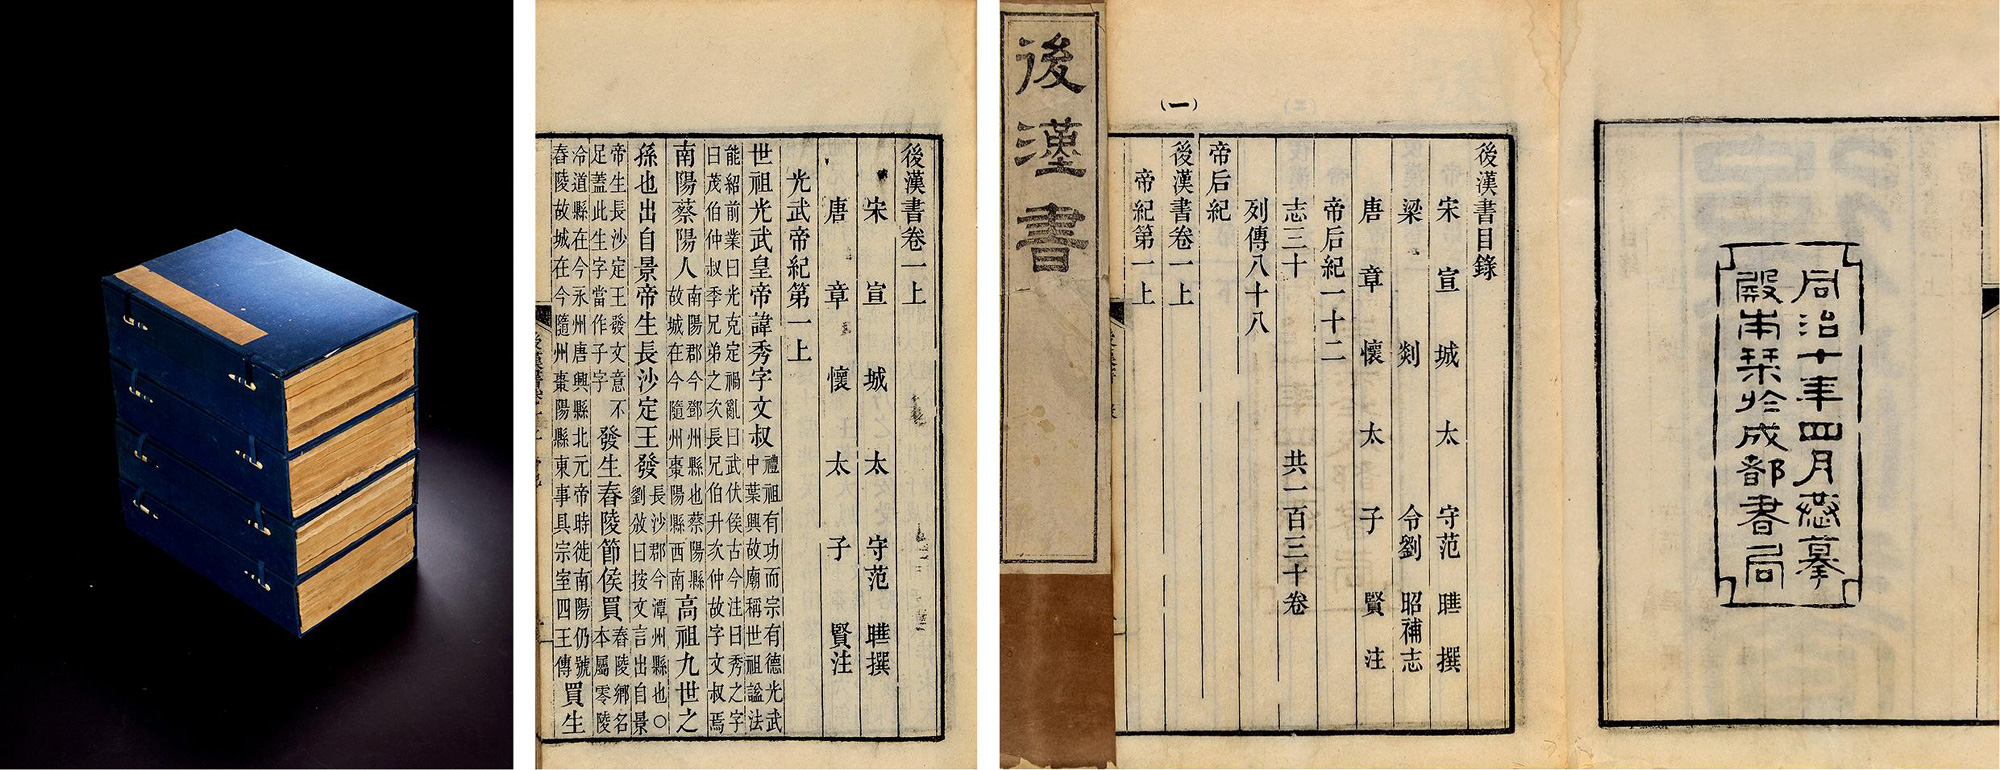 後漢書卷一上
宋宣城太守范曄撰
唐章懷太子賢注
光武帝紀第一上
世祖光武皇帝諱秀字文叔禮祖有功而宗有德光武中葉興故廟稱世祖謚法
能紹前業曰光克定禍亂曰武伏侯古今注曰秀之字曰茂伯仲叔季兄弟之次長兄伯升次仲故字文叔焉
南陽蔡陽人南陽郡今鄧州縣也蔡陽縣故城在今隨州棗陽縣西南高祖九世之
孫也出自景帝生長沙定王發長沙郡今潭州縣也○劉攽曰按文言出自景
帝生長沙定王發文意不足蓋此生字當作子字發生舂陵節侯買舂陵鄉名本屬零陵
冷道縣在今永州唐興縣北元帝時徙南陽仍號舂陵故城在今隨州棗陽縣東事具宗室四王傳買生
後漢書
後漢書目錄
宋宣城太守范曄撰
梁剡令劉昭補志
唐章懷太子賢注
帝后紀一十二
志三十共一百三十卷
列傳八十八
帝后紀
後漢書卷一上
帝紀第一上
(一)
同治十年四月恭摹
殿本栞於成都書局